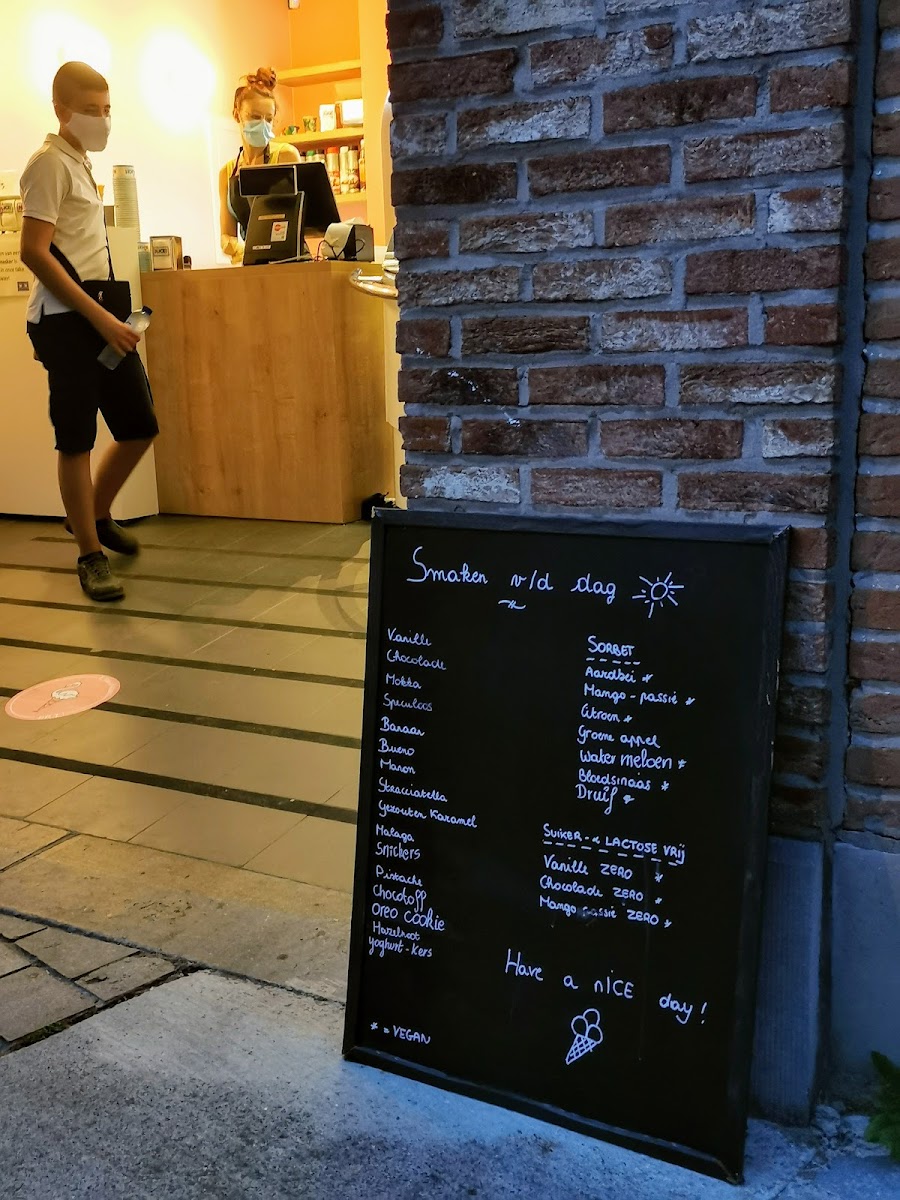 Smaken v/d dag
Vanille
Chocolade
Mokka
Speculoos
Banaan
Bueno
Maron
Stracciatella
Gezouten Karamel
Malaga
Snickers
Pistache
Chocotoff
Oreo cookie
Hazelnoot
yoghurt-kers
* = VEGAN
SORBET
Aardbei *
Mango-passie *
Citroen *
Groene appel
Watermeloen *
Bloedsinaas *
Druif *
SUIKER- & LACTOSE VRIJ
Vanille ZERO *
Chocolade ZERO *
Mango passie ZERO *
Have a nICE day!